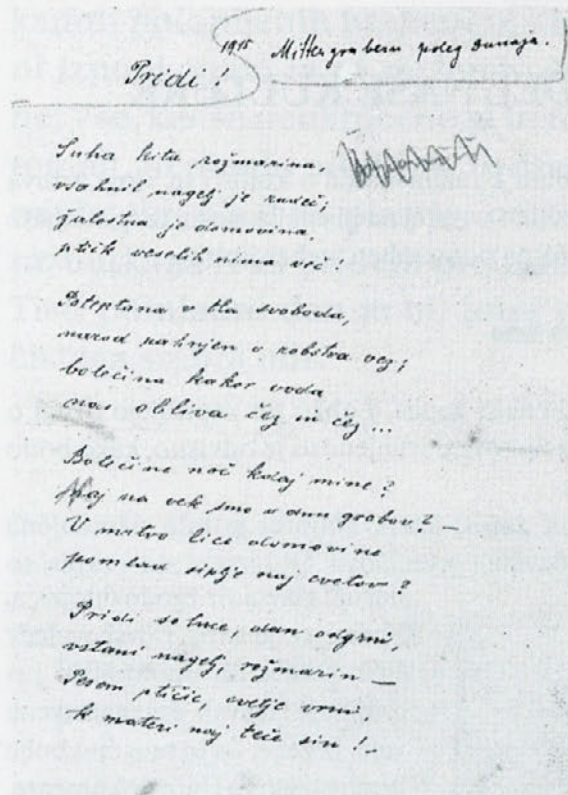 1915 Mittergrabern poleg Dunaja.
Pridi!
Suha kita rožmarina,
usahnil nagelj je rudeč,
žalostna je domovina
ptičk veselih nima več.
Poteptana svetla svoboda,
narod vabrjen v robstva ječ;
bolečina kakor voda
nas obliva čez in čez...
Bolečine noč kdaj mine?
Kaj na vek smo v dnu grobov?
V mrtvo lice domovine
pomlad siplje naj cvetov?
Pridi solnce, dan odgrni,
vstani nagelj, rožmarin —
Pesem ptičic, cvetje vrni
k materi naj teče sin!..